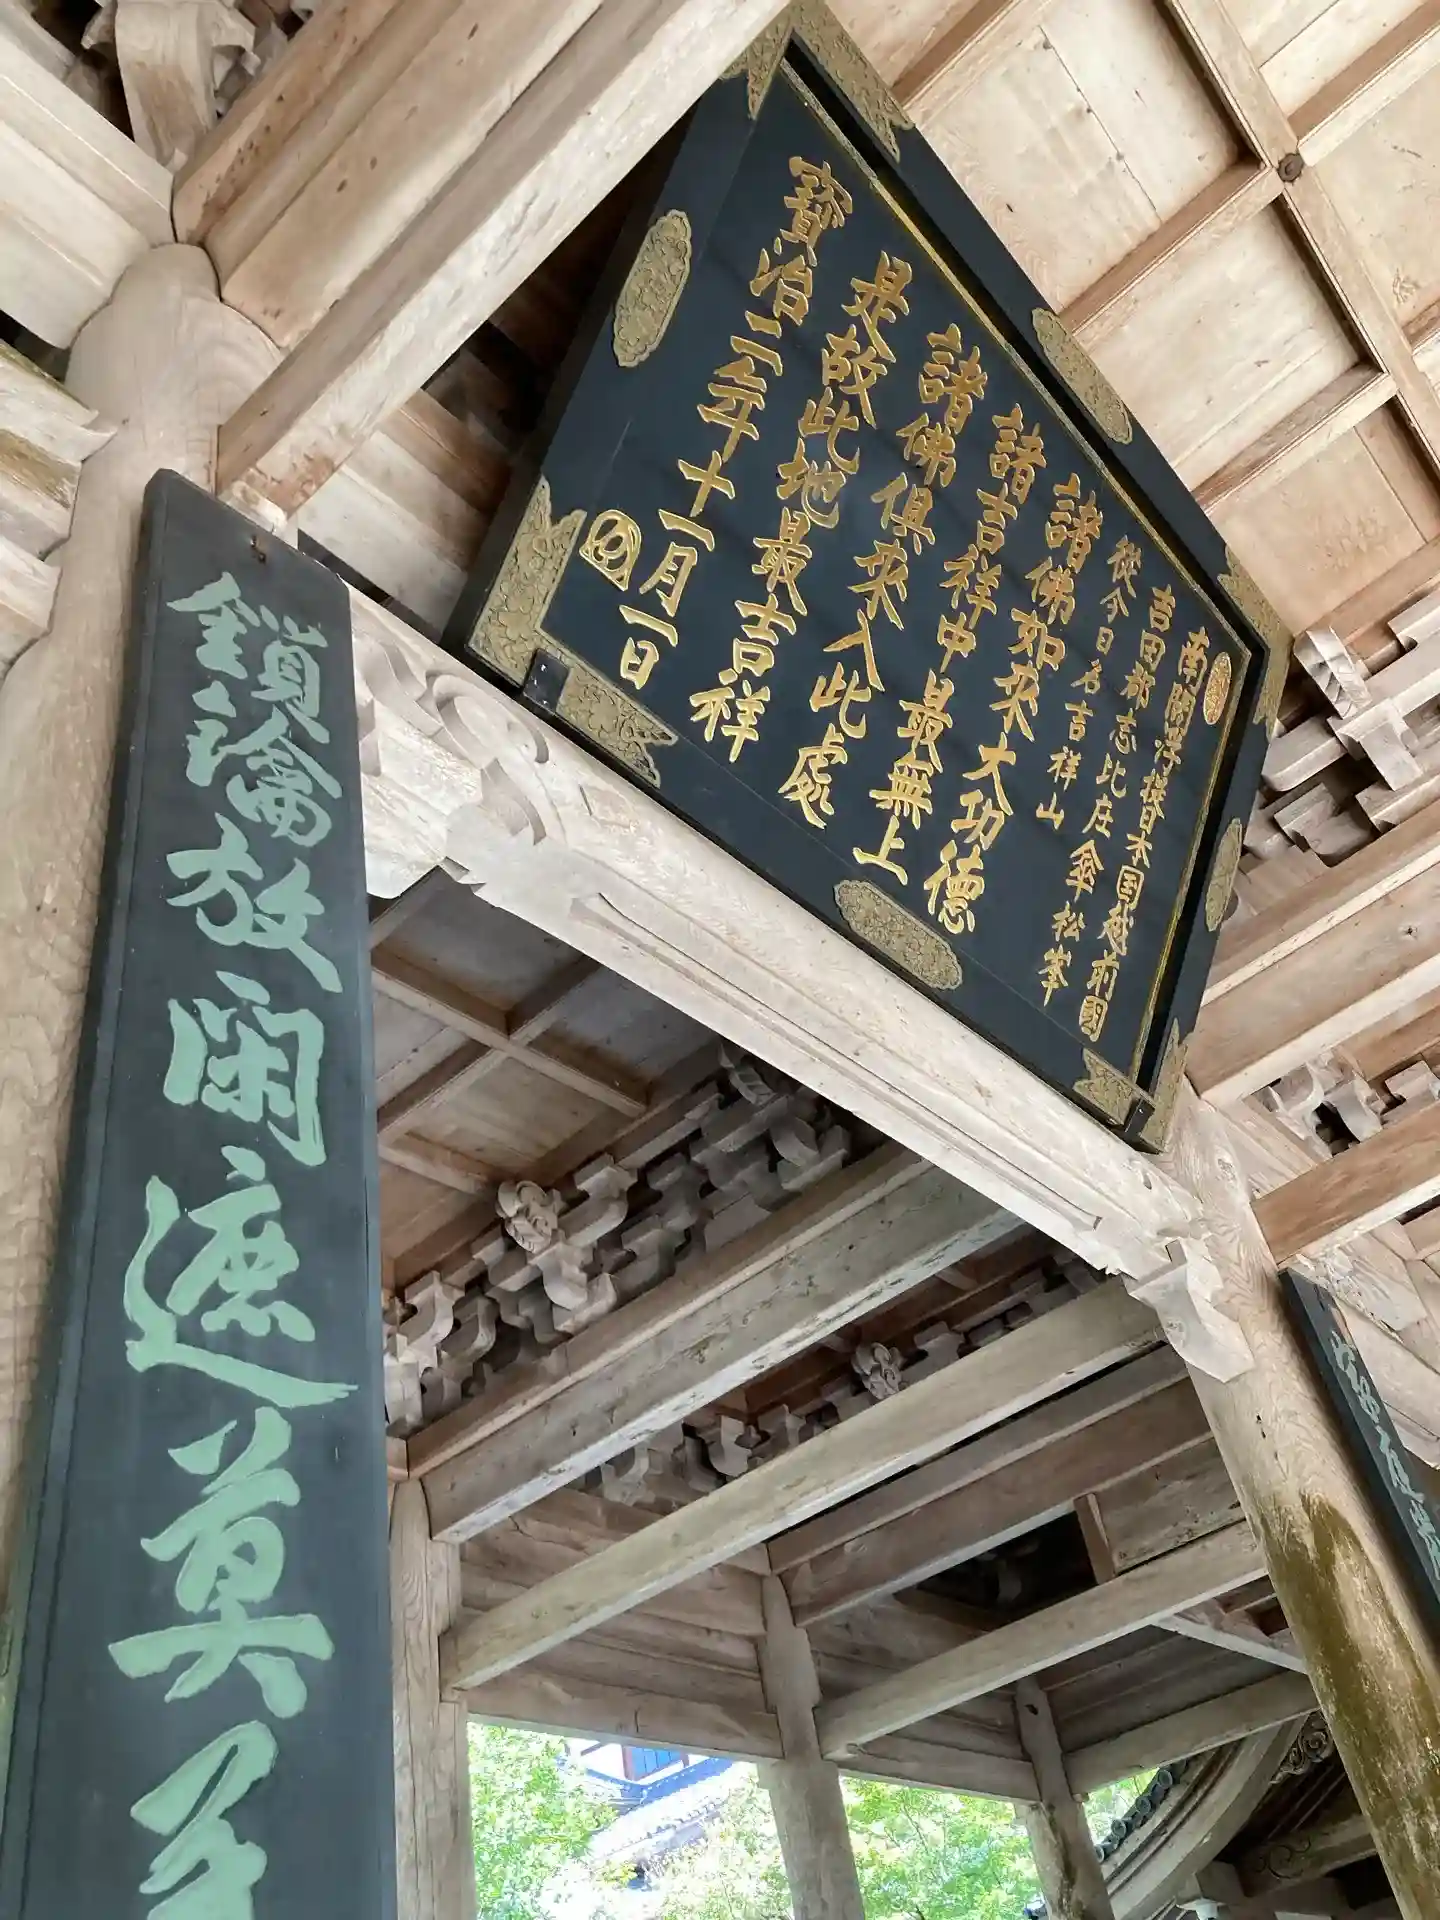 南閻浮提日本国越前国
吉田郡志比庄傘松峯
從今日名吉祥山
諸佛如来大功德
諸吉祥中最無上
諸佛俱来入此處
是故此地最吉祥
寳治二年十一月一日
鎖鑰放閑遮莫善